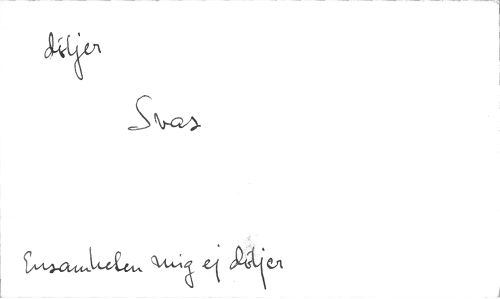 döljer
Svas
Ensamheten mig ej döljer